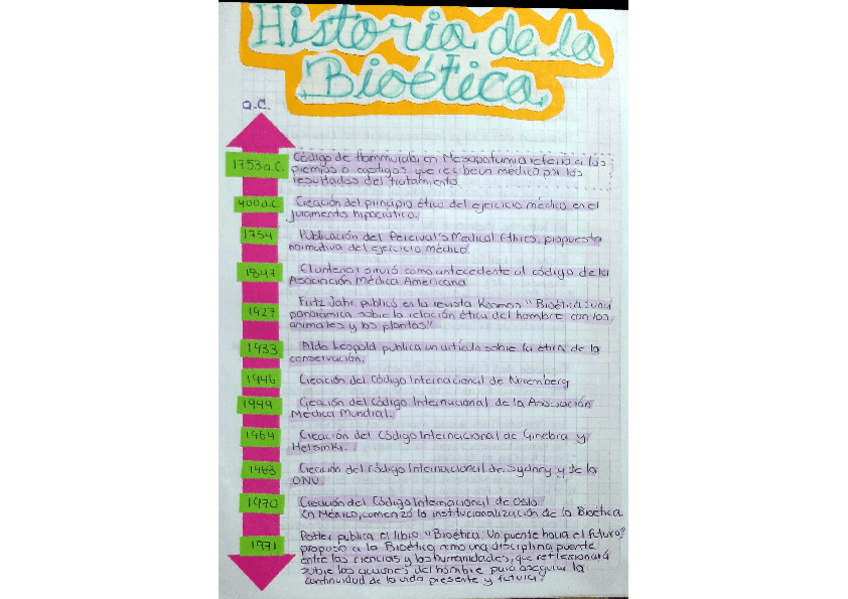 Historia de la
Bioética
a.C.
1753 a.C.
Código de Hammurabi en Mesopotamia referia a los
premios o castigos que reciben medico por los
resultados del tratamiento.
400 a.C.
Creación del principio ético del ejercicio médico en el
juramento hipocrático.
1754
Publicación del Percival's Medical Ethics, propuesta
normativa del ejercicio médico
1847
El anterior sirvió como antecedente al código de la
Asociación Médica Americana
1927
Fritz Jahr publicó en la revista Kosmos "Bioética: una
panorámica sobre la relación ética del hombre con los
animales y las plantas"
1933
Aldo Leopold publica un artículo sobre la ética de la
conservación.
1946
Creación del Código Internacional de Nuremberg
1949
Creación del Código Internacional de la Asociación
Médica Mundial.
1964
Creación del Código Internacional de Ginebra y
Helsinki.
1968
Creación del código Internacional de Sydney y de la
ONU
1970
Creación del Código Internacional de Oslo.
En México, comenzó la institucionalización de la Bioética
1971
Potter publica el libro "Bioética: Un puente hacia el futuro"
propuso a la Bioética como una disciplina puente
entre las ciencias y las humanidades, que reflexionará
sobre las acciones del hombre para asegurar la
continuidad de la vida presente y futura.